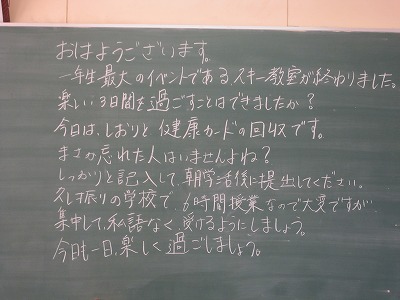 おはようございます。
一年生最大のイベントである、スキー教室が終わりました。
楽しい3日間を過ごすことはできましたか？
今日は、しおりと健康カードの回収です。
まさか忘れた人はいませんよね？
しっかりと記入して、朝学活後に提出してください。
久し振りの学校で、6時間授業なので大変ですが
集中して、私語なく、受けるようにしましょう。
今日も一日、楽しく過ごしましょう。